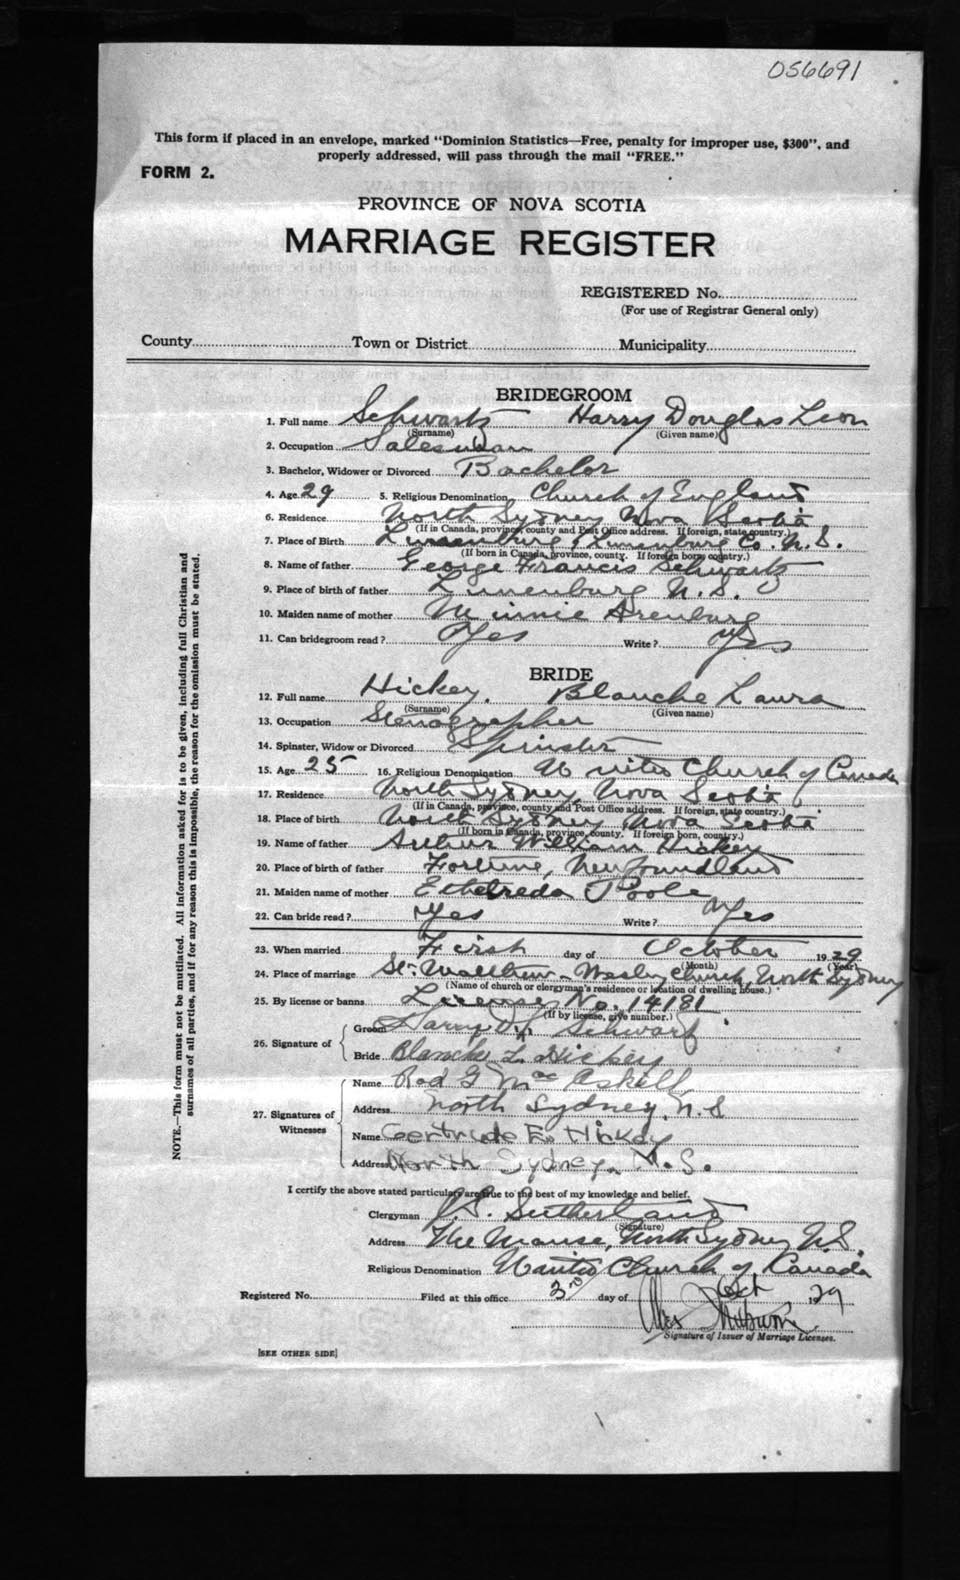 056691
This form if placed in an envelope, marked "Dominion Statistics—Free, penalty for improper use, $300", and
properly addressed, will pass through the mail "FREE."
FORM 2.
PROVINCE OF NOVA SCOTIA
MARRIAGE REGISTER
REGISTERED No.
(For use of Registrar General only)
County Town or District Municipality
BRIDEGROOM
1. Full name Schwartz Harry Douglas Leon
(Surname) (Given name)
2. Occupation Salesman
3. Bachelor, Widower or Divorced Bachelor
4. Age 29 5. Religious Denomination Church of England
6. Residence North Sydney Nova Scotia
(If in Canada, province, county and Post Office address. If foreign, state country.)
7. Place of Birth Lunenburg, Lunenburg Co. N.S.
(If born in Canada, province, county. If foreign born country.)
8. Name of father George Francis Schwartz
9. Place of birth of father Lunenburg N.S.
10. Maiden name of mother Minnie Arenburg
11. Can bridegroom read? Yes Write? Yes
BRIDE
12. Full name Hickey, Blanche Laura
(Surname) (Given name)
13. Occupation Stenographer
14. Spinster, Widow or Divorced Spinster
15. Age 25 16. Religious Denomination United Church of Canada
17. Residence North Sydney, Nova Scotia
(If in Canada, province, county and Post Office address. If foreign, state country.)
18. Place of birth North Sydney, Nova Scotia
(If born in Canada, province, county. If foreign born, country.)
19. Name of father Arthur William Hickey
20. Place of birth of father Fortune, Newfoundland
21. Maiden name of mother Ethelreda Poole
22. Can bride read? Yes Write? Yes
23. When married First day of October 1929
(Month) (Year)
24. Place of marriage St. Matthew-Wesley Church, North Sydney
(Name of church or clergyman's residence or location of dwelling house.)
25. By license or banns License No. 14181
(If by license, give number.)
26. Signature of
Groom Harry D. L. Schwartz
Bride Blanche L. Hickey
27. Signatures of Witnesses
Name Rod G MacAskill
Address North Sydney, N.S
Name Gertrude E. Hickey
Address North Sydney, N.S.
I certify the above stated particulars are true to the best of my knowledge and belief.
Clergyman Sutherland
(Signature)
Address The Manse, North Sydney N.S.
Religious Denomination United Church of Canada
Registered No. Filed at this office 3rd day of Oct 1929
Alex
Signature of Issuer of Marriage Licenses.
[SEE OTHER SIDE]
NOTE.—This form must not be mutilated. All information asked for is to be given, including full Christian and
surnames of all parties, and if for any reason this is impossible, the reason for the omission must be stated.